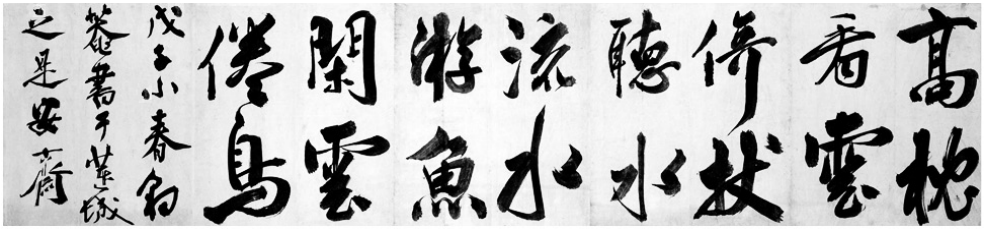 高枕
看雲
倚杖
聽水
流水
游魚
閑雲
倦鳥
戊子小春
葊書于蓮城
之是安齋